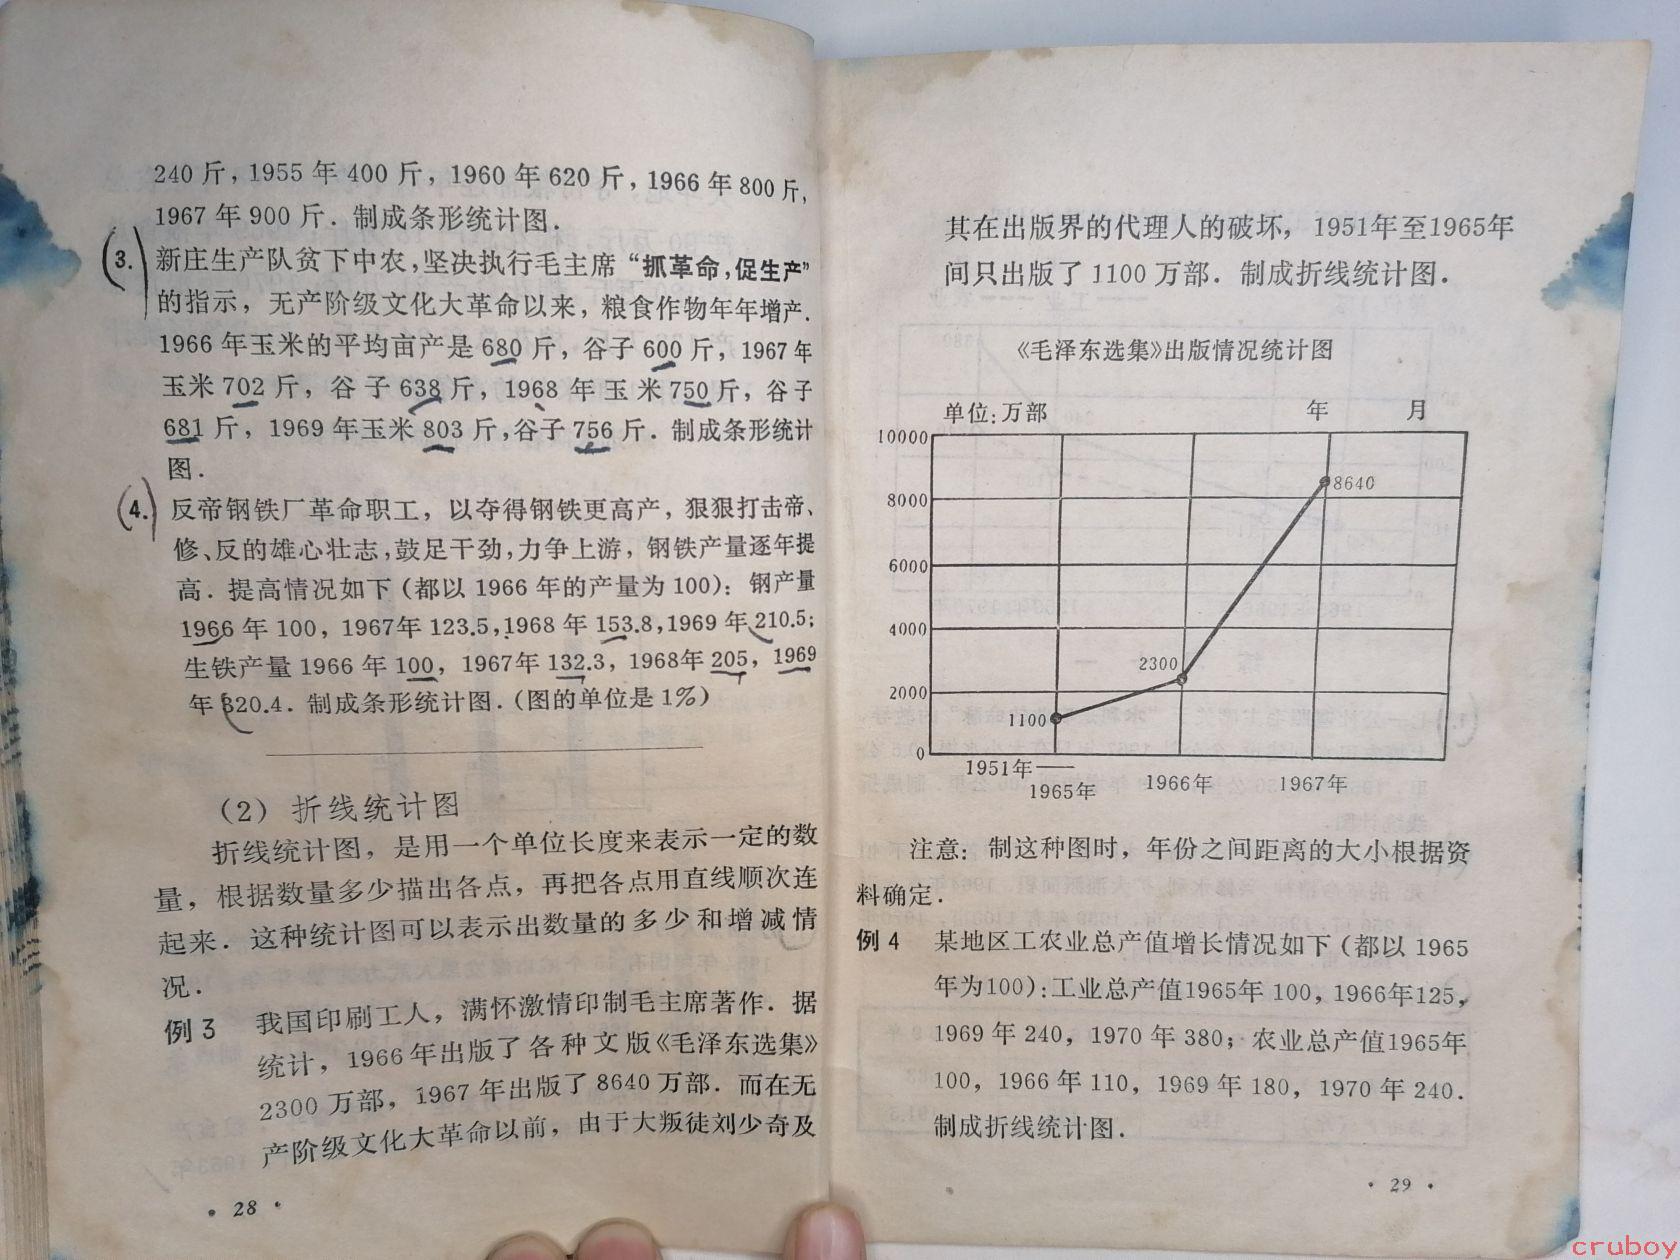 240 斤，1955 年 400 斤，1960 年 620 斤，1966 年 800 斤，
1967 年 900 斤．制成条形统计图．
3. 新庄生产队贫下中农，坚决执行毛主席“抓革命，促生产”
的指示，无产阶级文化大革命以来，粮食作物年年增产．
1966 年玉米的平均亩产是 680 斤，谷子 600 斤，1967 年
玉米 702 斤，谷子 638 斤，1968 年玉米 750 斤，谷子
681 斤，1969 年玉米 803 斤，谷子 756 斤．制成条形统计
图．
4. 反帝钢铁厂革命职工，以夺得钢铁更高产，狠狠打击帝、
修、反的雄心壮志，鼓足干劲，力争上游，钢铁产量逐年提
高．提高情况如下（都以 1966 年的产量为 100）：钢产量
1966 年 100，1967年 123.5，1968 年 153.8，1969 年 210.5；
生铁产量 1966 年 100，1967年 132.3，1968年 205，1969
年 320.4．制成条形统计图．（图的单位是 1%）
（2）折线统计图
折线统计图，是用一个单位长度来表示一定的数
量，根据数量多少描出各点，再把各点用直线顺次连
起来．这种统计图可以表示出数量的多少和增减情
况．
例 3 我国印刷工人，满怀激情印制毛主席著作．据
统计，1966 年出版了各种文版《毛泽东选集》
2300 万部，1967 年出版了 8640 万部．而在无
产阶级文化大革命以前，由于大叛徒刘少奇及
· 28 ·
其在出版界的代理人的破坏，1951年至1965年
间只出版了 1100 万部．制成折线统计图．
《毛泽东选集》出版情况统计图
单位：万部 年 月
10000
8000
6000
4000
2000
0
1100
2300
8640
1951年——
1965年
1966年
1967年
注意：制这种图时，年份之间距离的大小根据资
料确定．
例 4 某地区工农业总产值增长情况如下（都以 1965
年为100）：工业总产值1965年 100，1966年125，
1969 年 240，1970 年 380；农业总产值1965年
100，1966 年 110，1969 年 180，1970 年 240．
制成折线统计图．
· 29 ·
cruboy